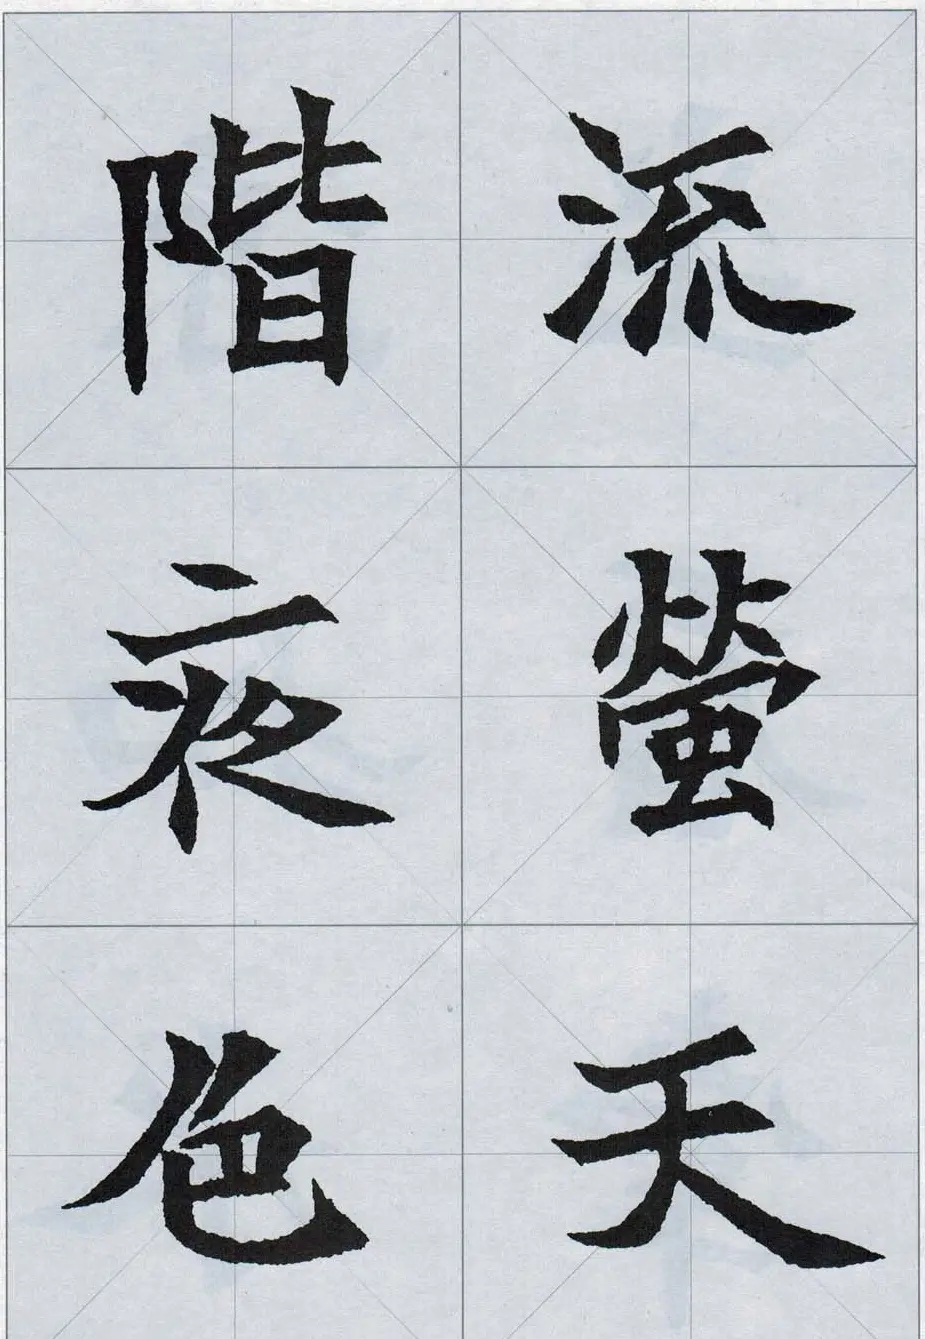 流螢天
階夜色